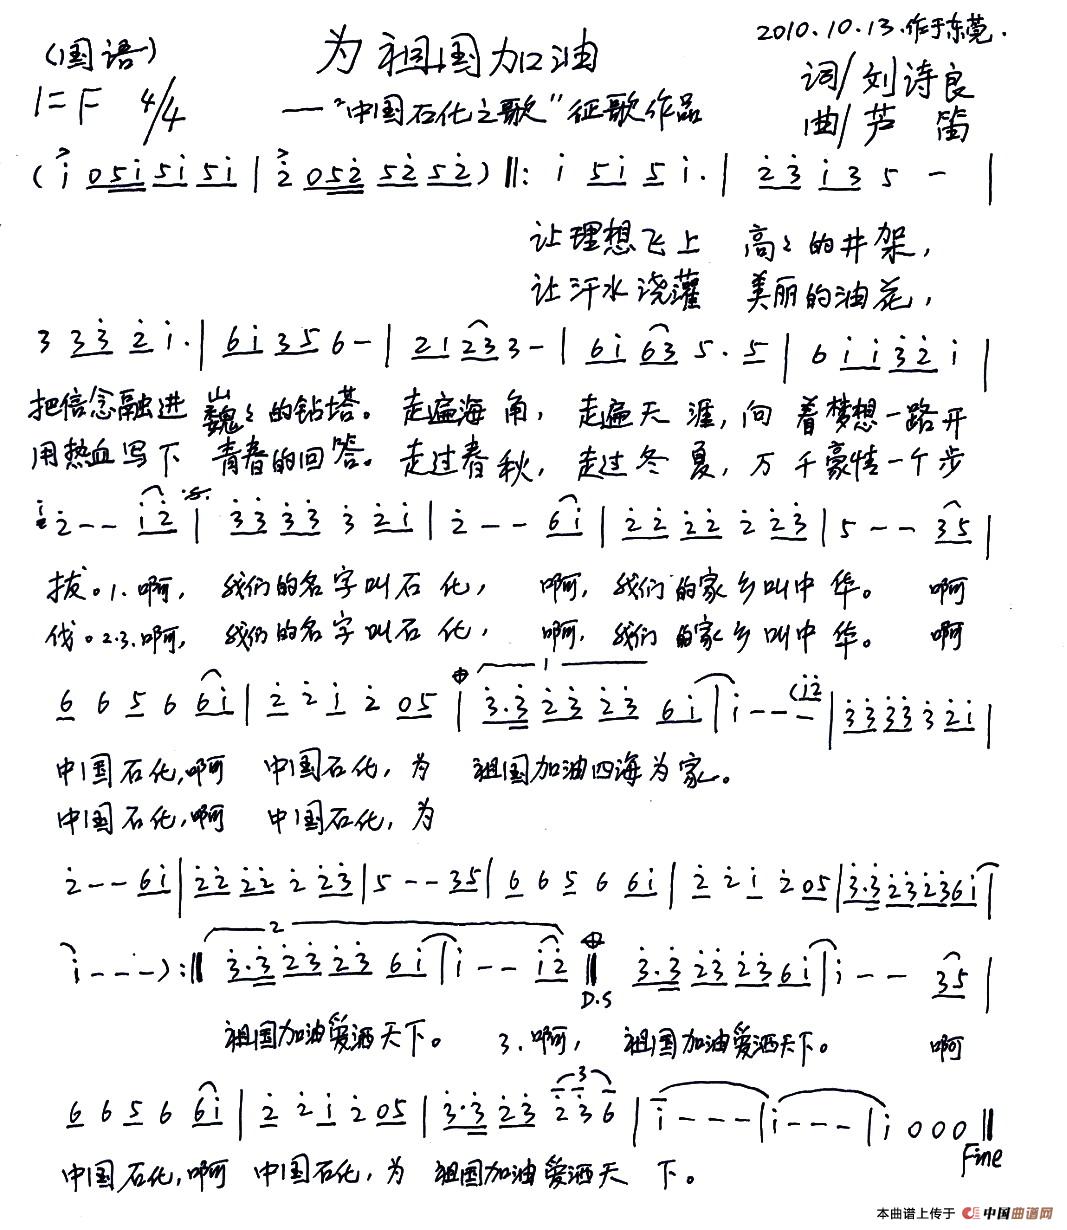 2010.10.13.作于东莞.
(国语) 为祖国加油
词/刘诗良
1=F 4/4 ——"中国石化之歌"征歌作品
曲/芦笛
(i 0 5 i 5 i 5 i | 2 0 5 2 5 2 5 2) ‖: i 5 i 5 i. | 2 3 i 3 5 - |
让理想飞上 高々的井架,
让汗水浇灌 美丽的油花,
3 3 3 2 i. | 6 i 3 5 6 - | 2 1 2 3 3 - | 6 i 6 3 5. 5 | 6 i i 3 2 i |
把信念融进 巍々的钻塔。走遍海角,走遍天涯,向着梦想一路开
用热血写下 青春的回答。走过春秋,走过冬夏,万千豪情一个步
2 - - i 2 | 3 3 3 3 3 2 i | 2 - - 6 i | 2 2 2 2 2 2 3 | 5 - - 3 5 |
拔。1.啊, 我们的名字叫石化, 啊,我们的家乡叫中华。 啊
伐。2.3.啊, 我们的名字叫石化, 啊,我们的家乡叫中华。 啊
6 6 5 6 6 i | 2 2 i 2 0 5 | 1 3. 3 2 3 2 3 6 i | i - - - (i 2 | 3 3 3 3 3 2 i |
中国石化,啊 中国石化,为 祖国加油四海为家。
中国石化,啊 中国石化,为
2 - - 6 i | 2 2 2 2 2 2 3 | 5 - - 3 5 | 6 6 5 6 6 i | 2 2 i 2 0 5 | 3. 3 2 3 2 3 6 i |
i - - - ) :‖ 2 3. 3 2 3 2 3 6 i | i - - i 2 ‖ D.S 3. 3 2 3 2 3 6 i | i - - 3 5 |
祖国加油爱洒天下。 3.啊, 祖国加油爱洒天下。 啊
6 6 5 6 6 i | 2 2 i 2 0 5 | 3. 3 2 3 2 3 6 3 | i - - - | i - - - | i 0 0 0 ‖ Fine
中国石化,啊 中国石化,为 祖国加油爱洒天 下。
本曲谱上传于 中国曲谱网